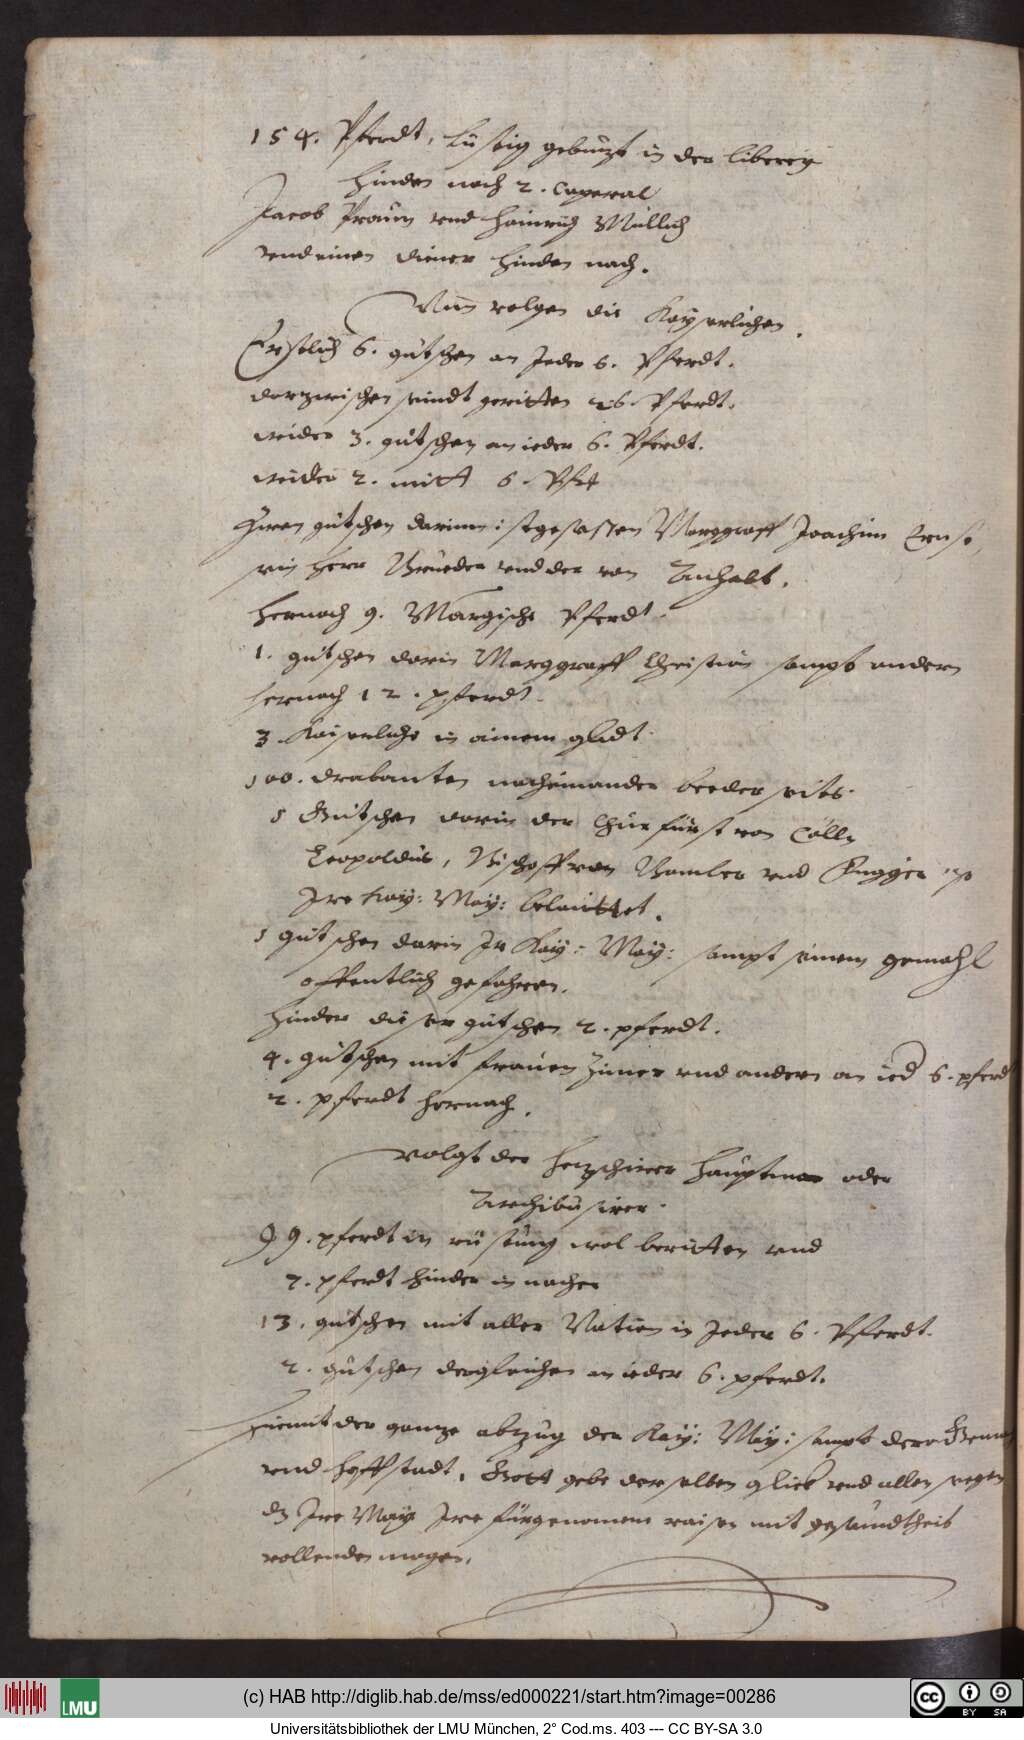 154. Pferdt, lustig gebuzt in der liberey
hinden nach 2. Caperal
Jacob Praun vnd Hainrich Müllich
vnd einen diener hinden nach.
Nun volgen die Kayserlichen.
Erstlich 6. gutschen an Jeder 6. Pferdt.
darzwischen seindt geritten 26. Pferdt.
wider 3. gutschen an ieder 6. Pferdt.
wider 2. mitt 6. Pfrt
Zwen gutschen darinn: ist gesassen Marggraff Joachim Ernst,
sein Herr Brueder vnd der von Anhalt.
Hernach 9. Märgische Pferdt.
1. gutschen darin Marggraff Christian sampt andern
hernach 12. pferdt.
3. Kaiserliche in ainem glidt.
100. drabanten nacheinander beeder seits.
1 Gutschen darin der Churfürst von Cölln
Leopoldus, Bischoff von Bamber vnd
Ire Kay: May: belaittet.
1 gutschen darin Ir Kay: May: sampt seinem gemahl
offentlich gefahren.
hinder diser gutschen 2. pferdt.
4. gutschen mit frauen Zimer vnd andern an ied 6. pferdt
2. pferdt hernach.
volgt der Hauptman oder
Archibusirer.
99. pferdt in rüstung wol beritten vnd
2. pferdt hinder in nacher
13. gutschen mit aller Nation in Jeder 6. Pferdt.
2. gutschen dergleichen an ieder 6. pferdt.
Hiemit der ganze abzug der Kay: May: sampt dero
vnd hoffstadt. Gott gebe derselben glick vnd allen segen
dz Ire May Ire fürgenomene raisen mit gesundtheit
vollenden mogen.
(c) HAB http://diglib.hab.de/mss/ed000221/start.htm?image=00286
LMU
CC BY SA
Universitätsbibliothek der LMU München, 2° Cod.ms. 403 --- CC BY-SA 3.0